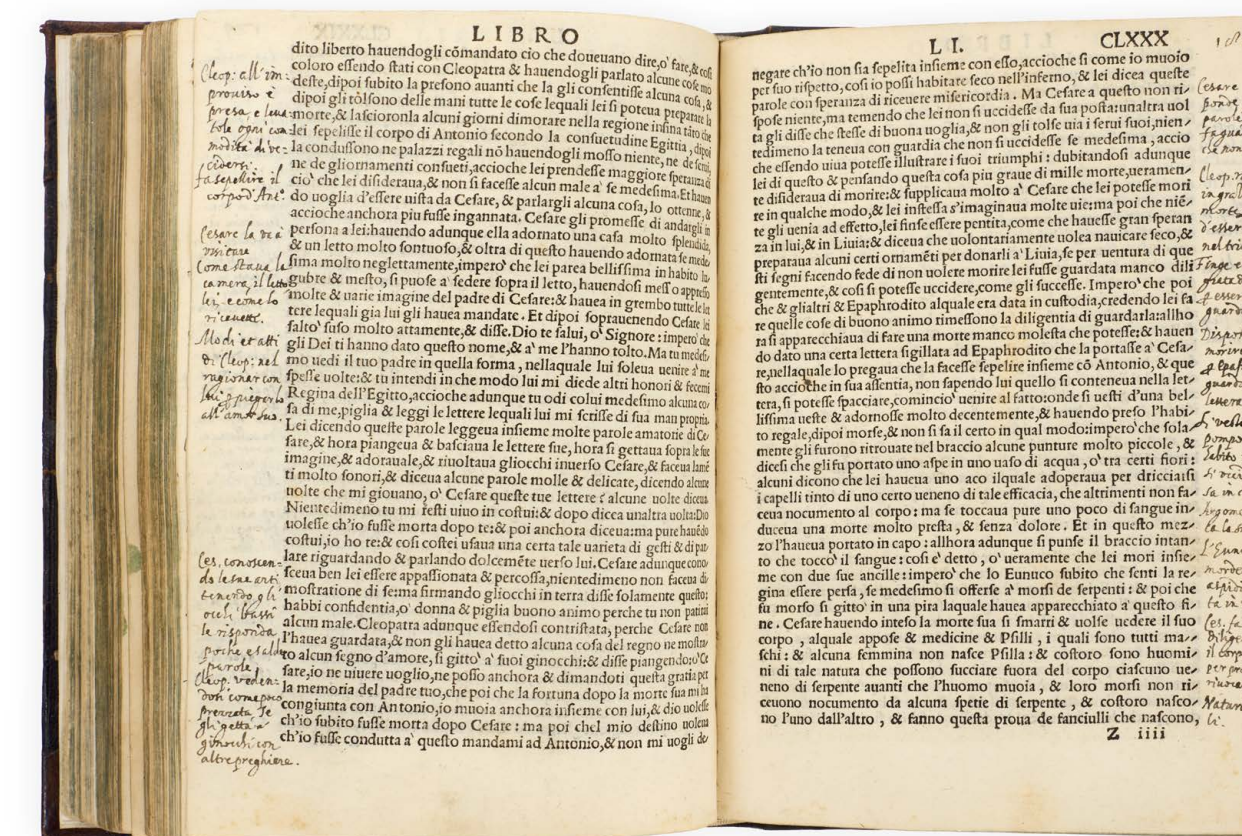 LIBRO
dito liberto hauendogli cõmandato cio che doueuano dire,o' fare,& cosi
coloro essendo stati con Cleopatra & hauendogli parlato alcune cose mo
deste,dipoi subito la presono auanti che la gli consentisse alcuna cosa,&
dipoi gli tolsono delle mani tutte le cose lequali lei si poteua preparare la
morte,& lascioronla alcuni giorni dimorare nella regione insina tãto che
lei sepelisse il corpo di Antonio secondo la consuetudine Egittia, dipoi
la condussono ne palazzi regali nõ hauendogli mosso niente, ne de serui,
ne de gliornamenti consueti,accioche lei prendesse maggiore speranza di
cio' che lei disideraua,& non si facesse alcun male a' se medesima.Et hauen
do uoglia d'essere uista da Cesare, & parlargli alcuna cosa, lo ottenne, &
accioche anchora piu fusse ingannata. Cesare gli promesse di andargli in
persona a lei:hauendo adunque ella adornato una casa molto splendida,
& un letto molto sontuoso,& oltra di questo hauendo adornata se mede
sima molto neglettamente,impero' che lei parea bellissima in habito lu
gubre & mesto, si puose a' sedere sopra il letto, hauendosi messo appresso
molte & uarie imagine del padre di Cesare:& hauea in grembo tutte le let
tere lequali gia lui gli hauea mandate . Et dipoi soprauenendo Cesare lei
salto' suso molto attamente,& disse. Dio te salui, o' Signore : impero' che
gli Dei ti hanno dato questo nome,& a' me l'hanno tolto.Ma tu medesi
mo uedi il tuo padre in quella forma , nellaquale lui soleua uenire a' me
spesse uolte:& tu intendi in che modo lui mi diede altri honori & fecemi
Regina dell'Egitto,accioche adunque tu odi colui medesimo alcuna co
sa di me,piglia & leggi le lettere lequali lui mi scrisse di sua man propria.
Lei dicendo queste parole leggeua insieme molte parole amatorie di Ce
sare,& hora piangeua & basciaua le lettere sue, hora si gettaua sopra le sue
imagine,& adorauale,& riuoltaua gliocchi inuerso Cesare,& faceua lamẽ
ti molto sonori,& diceua alcune parole molle & delicate, dicendo alcune
uolte che mi giouano, o' Cesare queste tue lettere : alcune uolte diceua.
Nientedimeno tu mi resti uiuo in costui:& dopo dicea unaltra uolta:Dio
uolesse ch'io fusse morta dopo te:& poi anchora diceua:ma pure hauẽdo
costui,io ho te:& cosi costei usaua una certa tale uarieta di gesti & di par
lare riguardando & parlando dolcemẽte uerso lui. Cesare adunque cono
sceua ben lei essere appassionata & percossa,nientedimeno non faceua di
mostratione di se:ma firmando gliocchi in terra disse solamente questo:
habbi confidentia,o' donna & piglia buono animo perche tu non patirai
alcun male.Cleopatra adunque essendosi contristata, perche Cesare non
l'hauea guardata,& non gli hauea detto alcuna cosa del regno ne mostra
to alcun segno d'amore, si gitto' a' suoi ginocchi:& disse piangendo:o' Ce
sare,io ne uiuere uoglio,ne posso anchora & dimandoti questa gratia per
la memoria del padre tuo,che poi che la fortuna dopo la morte sua mi ha
congiunta con Antonio,io muoia anchora insieme con lui,& dio uolesse
ch'io subito fusse morta dopo Cesare : ma poi chel mio destino uoleua
ch'io fusse condutta a' questo mandami ad Antonio,& non mi uogli de
Cleop: all'im:
prouiso è
presa, e leua:
tole ogni com:
modità di ve:
cidersi.
fa sepellire il
corpo d'Ant.º
Cesare la va à
visitare
Come staua la
camera, il letto
lei, e come lo
riceuette.
Modi et atti
di Cleop: nel
ragionar con
Ces. conoscen:
do le sue arti
tenendo gli
occhi bassi
le risponde
poche e salde
parole.
Cleop. veden:
dosi come poco
prezzata se
gli getta à
ginocchi con
altre preghiere.
LI. CLXXX
negare ch'io non sia sepelita insieme con esso,accioche si come io muoio
per suo rispetto, cosi io possi habitare seco nell'inferno, & lei dicea queste
parole con speranza di riceuere misericordia . Ma Cesare a questo non ri/
spose niente,ma temendo che lei non si uccidesse da sua posta:unaltra uol
ta gli disse che stesse di buona uoglia,& non gli tolse uia i serui suoi,nien/
tedimeno la teneua con guardia che non si uccidesse se medesima , accio
che essendo uiua potesse illustrare i suoi triumphi : dubitandosi adunque
lei di questo & pensando questa cosa piu graue di mille morte,ueramen/
te disideraua di morire:& supplicaua molto a' Cesare che lei potesse mori
re in qualche modo,& lei instessa s'imaginaua molte uie:ma poi che niẽ/
te gli uenia ad effetto,lei finse essere pentita,come che hauesse gran speran
za in lui,& in Liuia:& diceua che uolontariamente uolea nauicare seco,&
preparaua alcuni certi ornamẽti per donarli a' Liuia,se per uentura di que
sti segni facendo fede di non uolere morire lei fusse guardata manco dili
gentemente,& cosi si potesse uccidere,come gli successe. Impero' che poi
che & glialtri & Epaphrodito alquale era data in custodia,credendo lei fa
re quelle cose di buono animo rimessono la diligentia di guardarla:allho
ra si apparecchiaua di fare una morte manco molesta che potesse:& hauen
do dato una certa lettera sigillata ad Epaphrodito che la portasse a' Cesa/
re,nellaquale lo pregaua che la facesse sepelire insieme cõ Antonio, & que
sto accioche in sua assentia, non sapendo lui quello si conteneua nella let/
tera, si potesse spacciare,comincio' uenire al fatto:onde si uesti d'una bel/
lissima ueste & adornosse molto decentemente,& hauendo preso l'habi/
to regale,dipoi morse,& non si sa il certo in qual modo:impero' che sola/
mente gli furono ritrouate nel braccio alcune punture molto piccole , &
dicesi che gli fu portato uno aspe in uno uaso di acqua , o' tra certi fiori :
alcuni dicono che lei haueua uno aco ilquale adoperaua per dricciarsi
i capelli tinto di uno certo ueneno di tale efficacia, che altrimenti non fa/
ceua nocumento al corpo : ma se toccaua pure uno poco di sangue in/
duceua una morte molto presta , & senza dolore . Et in questo mez/
zo l'haueua portato in capo : allhora adunque si punse il braccio intan/
to che tocco' il sangue : cosi e' detto , o' ueramente che lei mori insie/
me con due sue ancille : impero' che lo Eunuco subito che senti la re/
gina essere persa, se medesimo si offerse a' morsi de serpenti : & poi che
fu morso si gitto' in una pira laquale hauea apparecchiato a' questo fi/
ne . Cesare hauendo inteso la morte sua si smarri & uolse uedere il suo
corpo , alquale appose & medicine & Psilli , i quali sono tutti ma/
schi : & alcuna femmina non nasce Psilla : & costoro sono huomi/
ni di tale natura che possono succiare fuora del corpo ciascuno ue/
neno di serpente auanti che l'huomo muoia , & loro morsi non ri/
ceuono nocumento da alcuna spetie di serpente , & costoro nasco/
no l'uno dall'altro , & fanno questa proua de fanciulli che nascono,
Z iiii